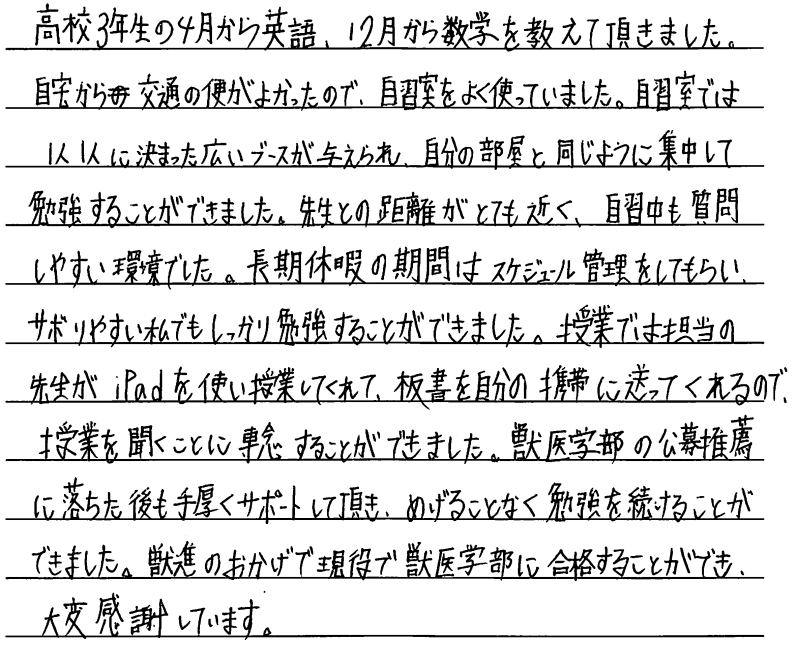 高校3年生の4月から英語、12月から数学を教えて頂きました。
自宅からも交通の便がよかったので、自習室をよく使っていました。自習室では
1人1人に決まった広いブースが与えられ、自分の部屋と同じように集中して
勉強することができました。先生との距離がとても近く、自習中も質問
しやすい環境でした。長期休暇の期間はスケジュール管理をしてもらい、
サボりやすい私でもしっかり勉強することができました。授業では担当の
先生がiPadを使い授業してくれて、板書を自分の携帯に送ってくれるので、
授業を聞くことに専念することができました。獣医学部の公募推薦
に落ちた後も手厚くサポートして頂き、めげることなく勉強を続けることが
できました。獣進のおかげで現役で獣医学部に合格することができ、
大変感謝しています。